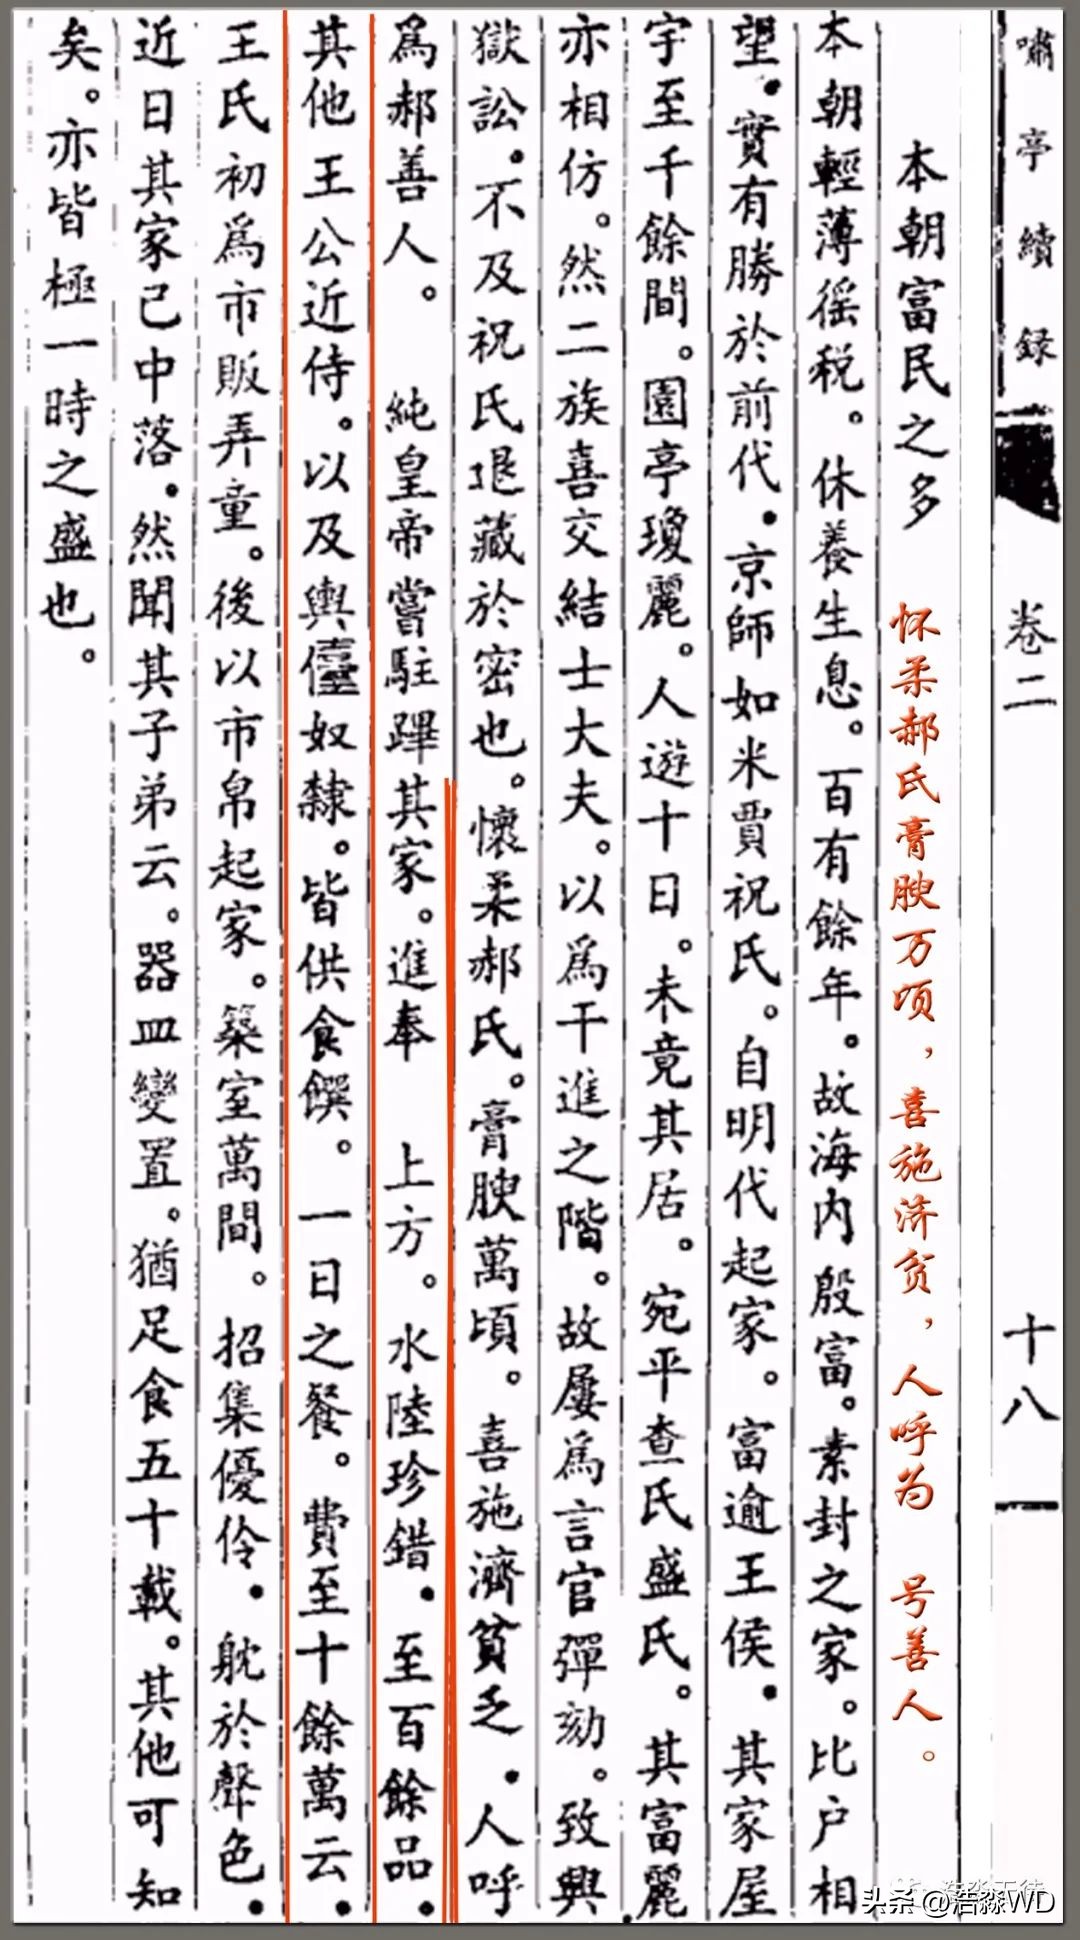 嘯亭續録 卷二 十八
本朝富民之多
怀柔郝氏膏腴万顷，喜施济贫，人呼为 号善人。
本朝輕薄徭税。休養生息。百有餘年。故海内殷富。素封之家。比户相
望。實有勝於前代。京師如米賈祝氏。自明代起家。富逾王侯。其家屋
宇至千餘間。園亭瓊麗。人遊十日。未竟其居。宛平查氏盛氏。其富麗
亦相仿。然二族喜交結士大夫。以爲干進之階。故屢爲言官彈劾。致興
獄訟。不及祝氏退藏於密也。懷柔郝氏。膏腴萬頃。喜施濟貧乏。人呼
爲郝善人。 純皇帝嘗駐蹕其家。進奉 上方。水陸珍錯。至百餘品。
其他王公近侍。以及輿儓奴隸。皆供食饌。一日之餐。費至十餘萬云。
王氏初爲市販弄童。後以市帛起家。築室萬間。招集優伶。躭於聲色。
近日其家已中落。然聞其子弟云。器皿變置。猶足食五十載。其他可知
矣。亦皆極一時之盛也。
头条 @浩淼WD